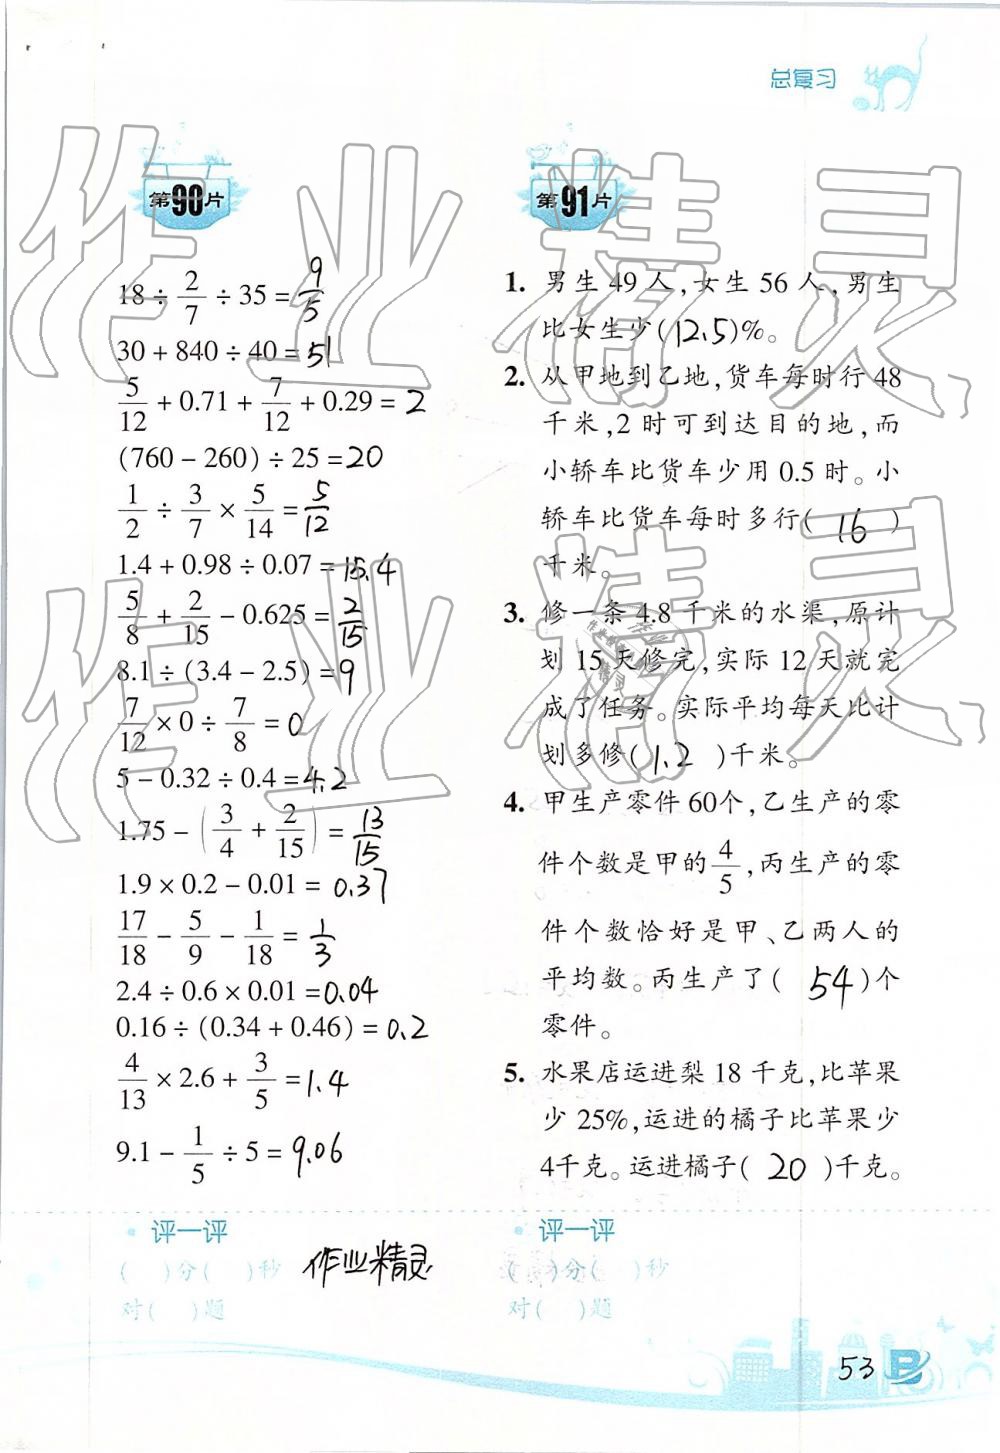 总复习
第90片
18÷2/7÷35=9/5
30+840÷40=51
5/12+0.71+7/12+0.29=2
(760-260)÷25=20
1/2÷3/7×5/14=5/12
1.4+0.98÷0.07=15.4
5/8+2/15-0.625=2/15
8.1÷(3.4-2.5)=9
7/12×0÷7/8=0
5-0.32÷0.4=4.2
1.75-(3/4+2/15)=13/15
1.9×0.2-0.01=0.37
17/18-5/9-1/18=1/3
2.4÷0.6×0.01=0.04
0.16÷(0.34+0.46)=0.2
4/13×2.6+3/5=1.4
9.1-1/5÷5=9.06
评一评
( )分( )秒
对( )题
作业精灵
第91片
1. 男生49人,女生56人,男生
比女生少(12.5)%。
2. 从甲地到乙地,货车每时行48
千米,2时可到达目的地,而
小轿车比货车少用0.5时。小
轿车比货车每时多行(16)
千米。
3. 修一条4.8千米的水渠,原计
划15天修完,实际12天就完
成了任务。实际平均每天比计
划多修(1.2)千米。
4. 甲生产零件60个,乙生产的零
件个数是甲的4/5,丙生产的零
件个数恰好是甲、乙两人的
平均数。丙生产了(54)个
零件。
5. 水果店运进梨18千克,比苹果
少25%,运进的橘子比苹果少
4千克。运进橘子(20)千克。
评一评
( )分( )秒
对( )题
53
B
作业精灵
作业精灵